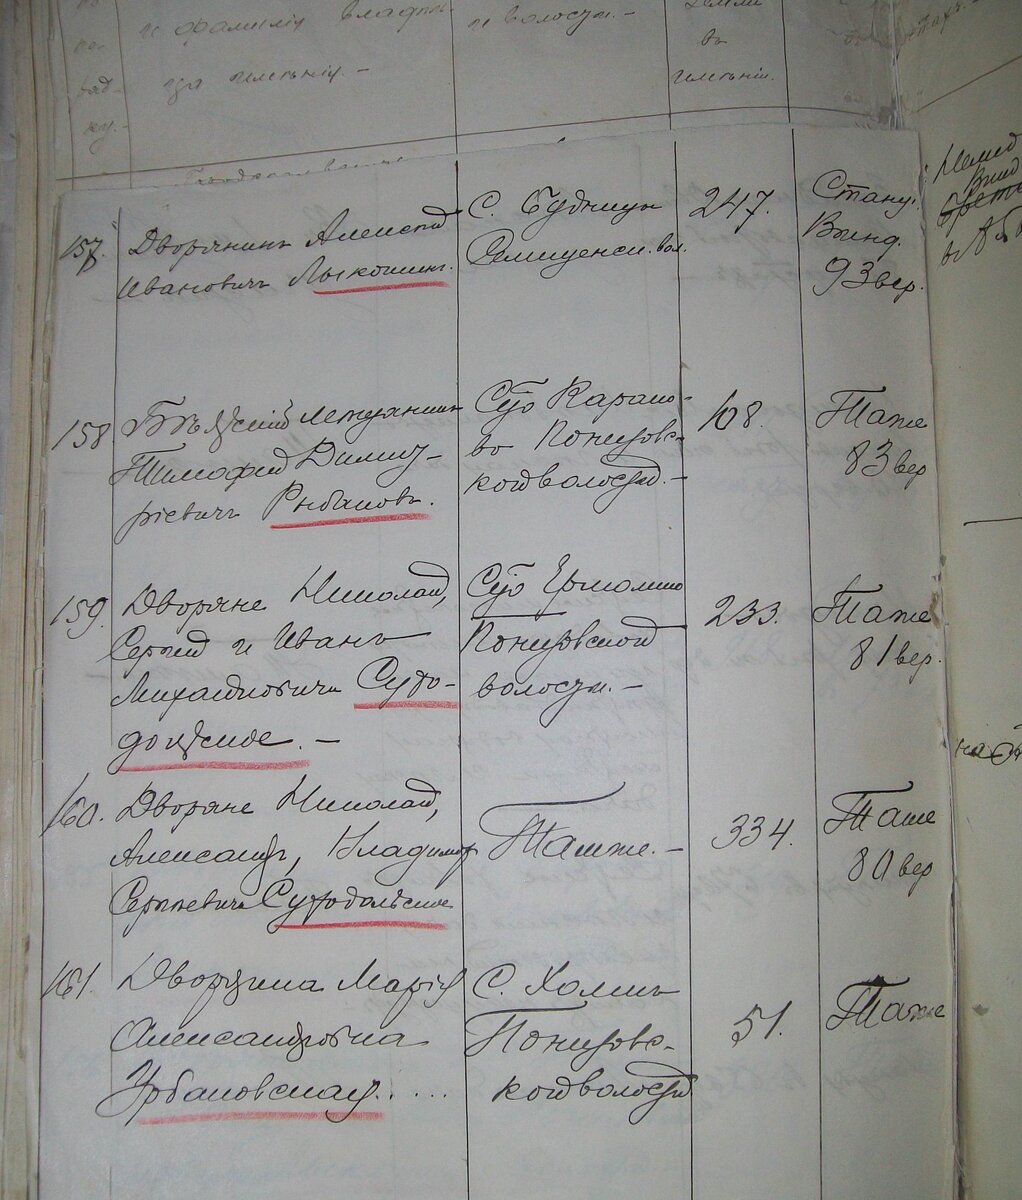 и фамилія владѣль-
и волости. -
въ
ца имѣнія. -
имѣніи.
157.
Дворянинъ Александ
Ивановичъ Лыкошинъ.
С. Будницы
вол.
247.
Стан.
Винд.
93 вер.
158
Бѣльскій мещанинъ
Тимофей Димит-
ріевичъ Рыбаковъ.
Сцо Карало-
во Понизовс-
кой волости. -
108.
Таже
83 вер
159.
Дворяне Николай,
Сергей и Иванъ
Михайловичи Сухо-
дольскіе. -
Сцо Ермолино
Понизовской
волости. -
233.
Таже
81 вер.
160.
Дворяне Николай,
Александръ, Владимір
Сергѣевичи Суходольскіе
Тамже. -
334.
Таже
80 вер
161.
Дворянка Марія
Александровна
Урбановская.....
С. Холмъ
Понизовс-
кой волости
51.
Таже